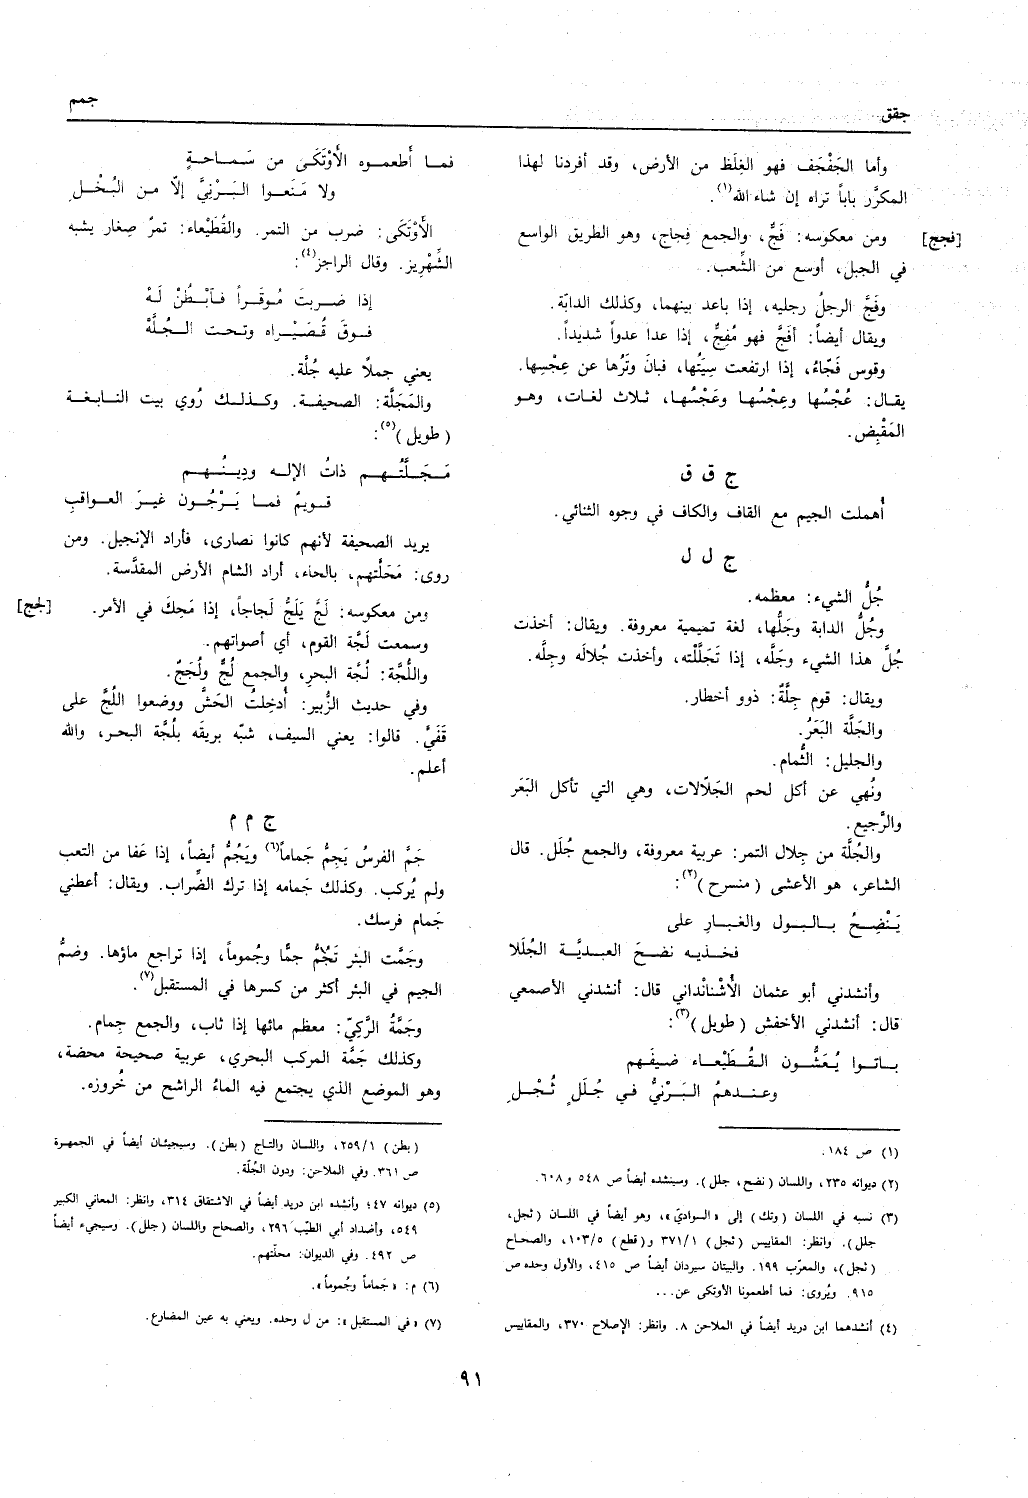 جقق
جمم
وأما الجَفْجَف فهو الغِلَظ من الأرض، وقد أفردنا لهذا
المكرَّر باباً تراه إن شاء الله(١).
[فجج]
ومن معكوسه: فَجٌّ، والجمع فِجاج، وهو الطريق الواسع
في الجبل، أوسع من الشِّعب.
وفَجَّ الرجلُ رجليه، إذا باعد بينهما، وكذلك الدابّة.
ويقال أيضاً: أفَجَّ فهو مُفِجٌّ، إذا عدا عدواً شديداً.
وقوس فَجّاءُ، إذا ارتفعت سِيَتُها، فبانَ وتَرُها عن عِجْسِها.
يقال: عُجْسُها وعِجْسُها وعَجْسُها، ثلاث لغات، وهو
المَقْبِض.
ج ق ق
أُهملت الجيم مع القاف والكاف في وجوه الثنائي.
ج ل ل
جُلُّ الشيء: معظمه.
وجُلُّ الدابة وجَلُّها، لغة تميمية معروفة. ويقال: أخذت
جُلَّ هذا الشيء وجَلَّه، إذا تَجَلَّلْته، وأخذت جُلالَه وجِلَّه.
ويقال: قوم جِلَّةٌ: ذوو أخطار.
والجَلَّة البَعَرُ.
والجليل: الثُّمام.
ونُهي عن أكل لحم الجَلّالات، وهي التي تأكل البَعَر
والرَّجيع.
والجُلَّة من جِلال التمر: عربية معروفة، والجمع جُلَل. قال
الشاعر، هو الأعشى (منسرح)(٢):
يَنْضِحُ بالبول والغبارِ على
فخذيه نضحَ العبديَّة الجُلَلا
وأنشدني أبو عثمان الأُشْنانْداني قال: أنشدني الأصمعي
قال: أنشدني الأخفش (طويل)(٣):
باتوا يُعَشُّون القُطَيْعاء ضيفَهم
وعندهمُ البَرْنيُّ في جُلَلٍ ثُجْلِ
فما أطعموه الأَوْتَكَى من سَماحةٍ
ولا مَنَعوا البَرْنِيَّ إلّا من البُخْلِ
الأَوْتَكَى: ضرب من التمر. والقُطَيْعاء: تمرٌ صِغار يشبه
الشِّهْريز. وقال الراجز(٤):
إذا ضربتَ مُوقَراً فآبْطُنْ لَهْ
فوقَ قُصَيْراه وتحت الجُلَّهْ
يعني جملًا عليه جُلَّة.
والمَجَلَّة: الصحيفة. وكذلك رُوي بيت النابغة
(طويل)(٥):
مَجَلَّتُهم ذاتُ الإله ودينُهم
قويمٌ فما يَرْجُون غيرَ العواقبِ
يريد الصحيفة لأنهم كانوا نصارى، فأراد الإنجيل. ومن
روى: مَحَلَّتهم، بالحاء، أراد الشام الأرض المقدَّسة.
[لجج]
ومن معكوسه: لَجَّ يَلَجُّ لَجاجاً، إذا مَحِكَ في الأمر.
وسمعت لَجَّة القوم، أي أصواتهم.
واللُّجَّة: لُجَّة البحرِ، والجمع لُجٌّ ولُجَجٌ.
وفي حديث الزُّبير: أُدخِلتُ الحَشَّ ووضعوا اللُّجَّ على
قَفَيَّ. قالوا: يعني السيف، شبّه بريقَه بلُجَّة البحر، والله
أعلم.
ج م م
جَمَّ الفرسُ يَجِمُّ جَماماً(٦) ويَجُمُّ أيضاً، إذا عَفا من التعب
ولم يُركب. وكذلك جَمامه إذا ترك الضِّراب. ويقال: أعطني
جَمام فرسك.
وجَمَّت البئر تَجُمُّ جمًّا وجُموماً، إذا تراجع ماؤها. وضمُّ
الجيم في البئر أكثر من كسرها في المستقبل(٧).
وجَمَّةُ الرَّكيّ: معظم مائها إذا ثاب، والجمع جِمام.
وكذلك جَمَّة المركب البحري، عربية صحيحة محضة،
وهو الموضع الذي يجتمع فيه الماءُ الراشح من خُروزه.
(١) ص ١٨٤.
(٢) ديوانه ٢٣٥، واللسان (نضح، جلل). وسينشده أيضاً ص ٥٤٨ و٦٠٨.
(٣) نسبه في اللسان (وتك) إلى «السواديّ»، وهو أيضاً في اللسان (ثجل،
جلل). وانظر: المقاييس (ثجل) ٣٧١/١ و(قطع) ١٠٣/٥، والصحاح
(ثجل)، والمعرّب ١٩٩. والبيتان سيردان أيضاً ص ٤١٥، والأول وحده ص
٩١٥. ويُروى: فما أطعمونا الأوتكى عن...
(٤) أنشدهما ابن دريد أيضاً في الملاحن ٨. وانظر: الإصلاح ٣٧٠، والمقاييس
(بطن) ٢٥٩/١، واللسان والتاج (بطن). وسيجيئان أيضاً في الجمهرة
ص ٣٦١. وفي الملاحن: ودون الجُلّة.
(٥) ديوانه ٤٧؛ وأنشده ابن دريد أيضاً في الاشتقاق ٣١٤، وانظر: المعاني الكبير
٥٤٩، وأضداد أبي الطيّب ٢٩٦، والصحاح واللسان (جلل). وسيجيء أيضاً
ص ٤٩٢. وفي الديوان: محلّتهم.
(٦) م: «جَماماً وجُموماً».
(٧) «في المستقبل»: من ل وحده. ويعني به عين المضارع.
٩١